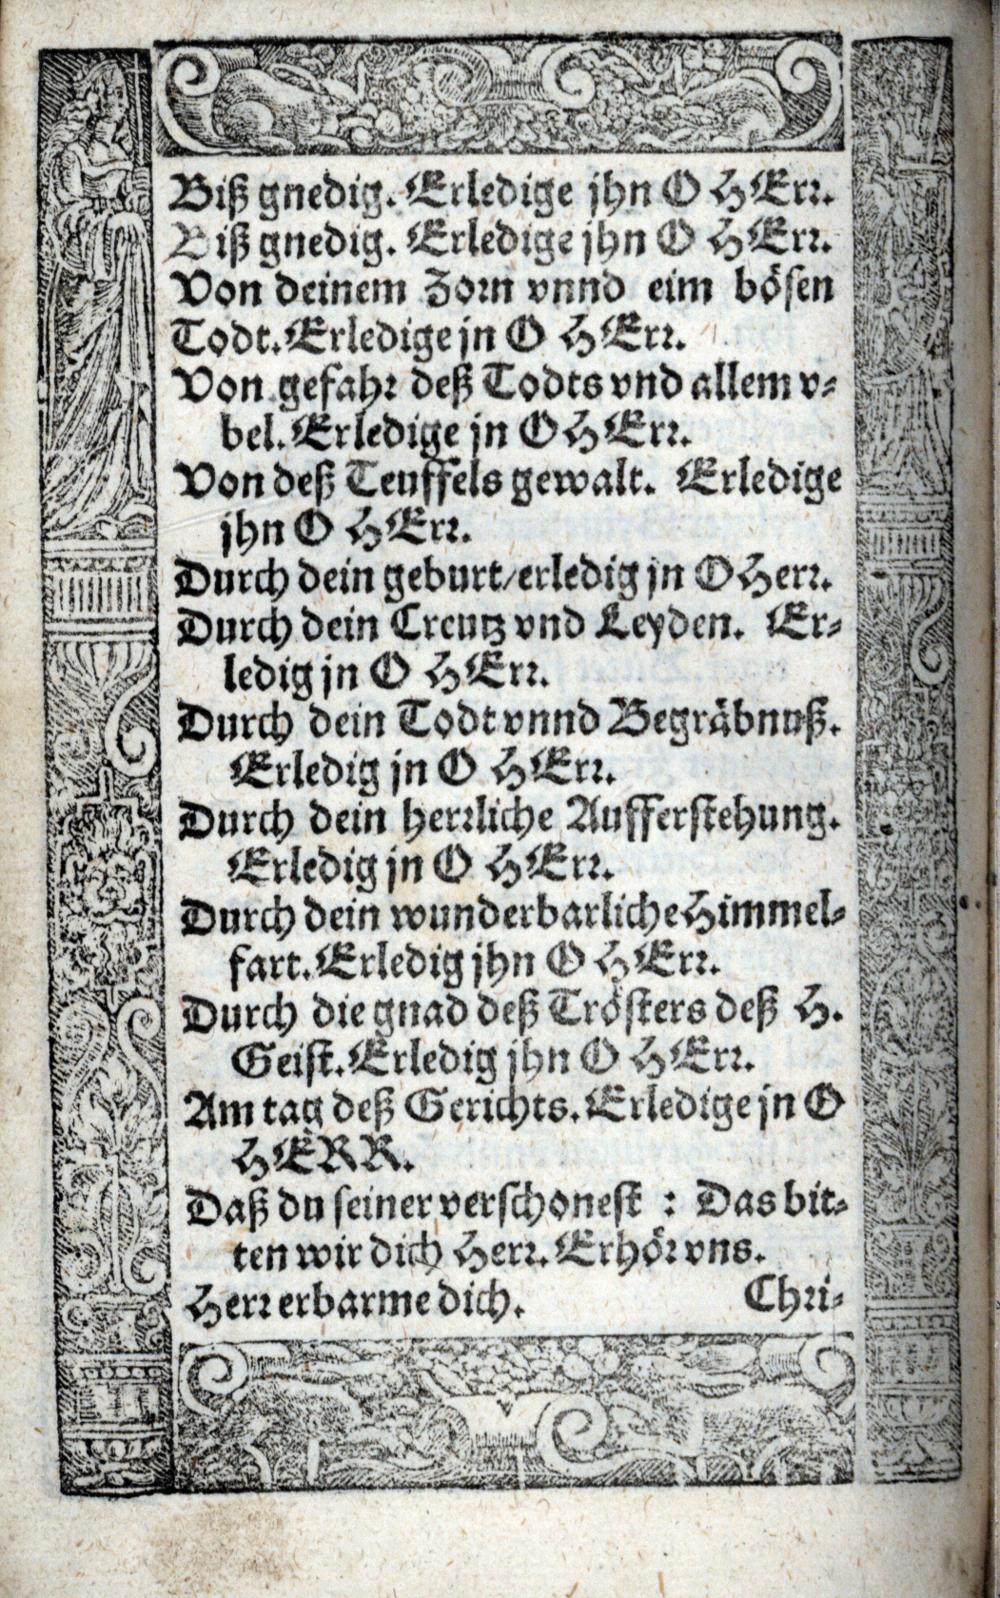 Biß gnedig. Erledige jhn O HErr.
Biß gnedig. Erledige jhn O HErr.
Von deinem Zorn vnnd eim bösen
Todt. Erledige jn O HErr.
Von gefahr deß Todts vnd allem v⸗
bel. Erledige jn O HErr.
Von deß Teuffels gewalt. Erledige
jhn O HErr.
Durch dein geburt/ erledig jn O Herr.
Durch dein Creutz vnd Leyden. Er⸗
ledig jn O HErr.
Durch dein Todt vnnd Begräbnuß.
Erledig jn O HErr.
Durch dein herrliche Aufferstehung.
Erledig jn O HErr.
Durch dein wunderbarliche Himmel⸗
fart. Erledig jhn O HErr.
Durch die gnad deß Trösters deß H.
Geist. Erledig jhn O HErr.
Am tag deß Gerichts. Erledige jn O
HERR.
Daß du seiner verschonest : Das bit⸗
ten wir dich Herr. Erhör vns.
Herr erbarme dich. Chri⸗